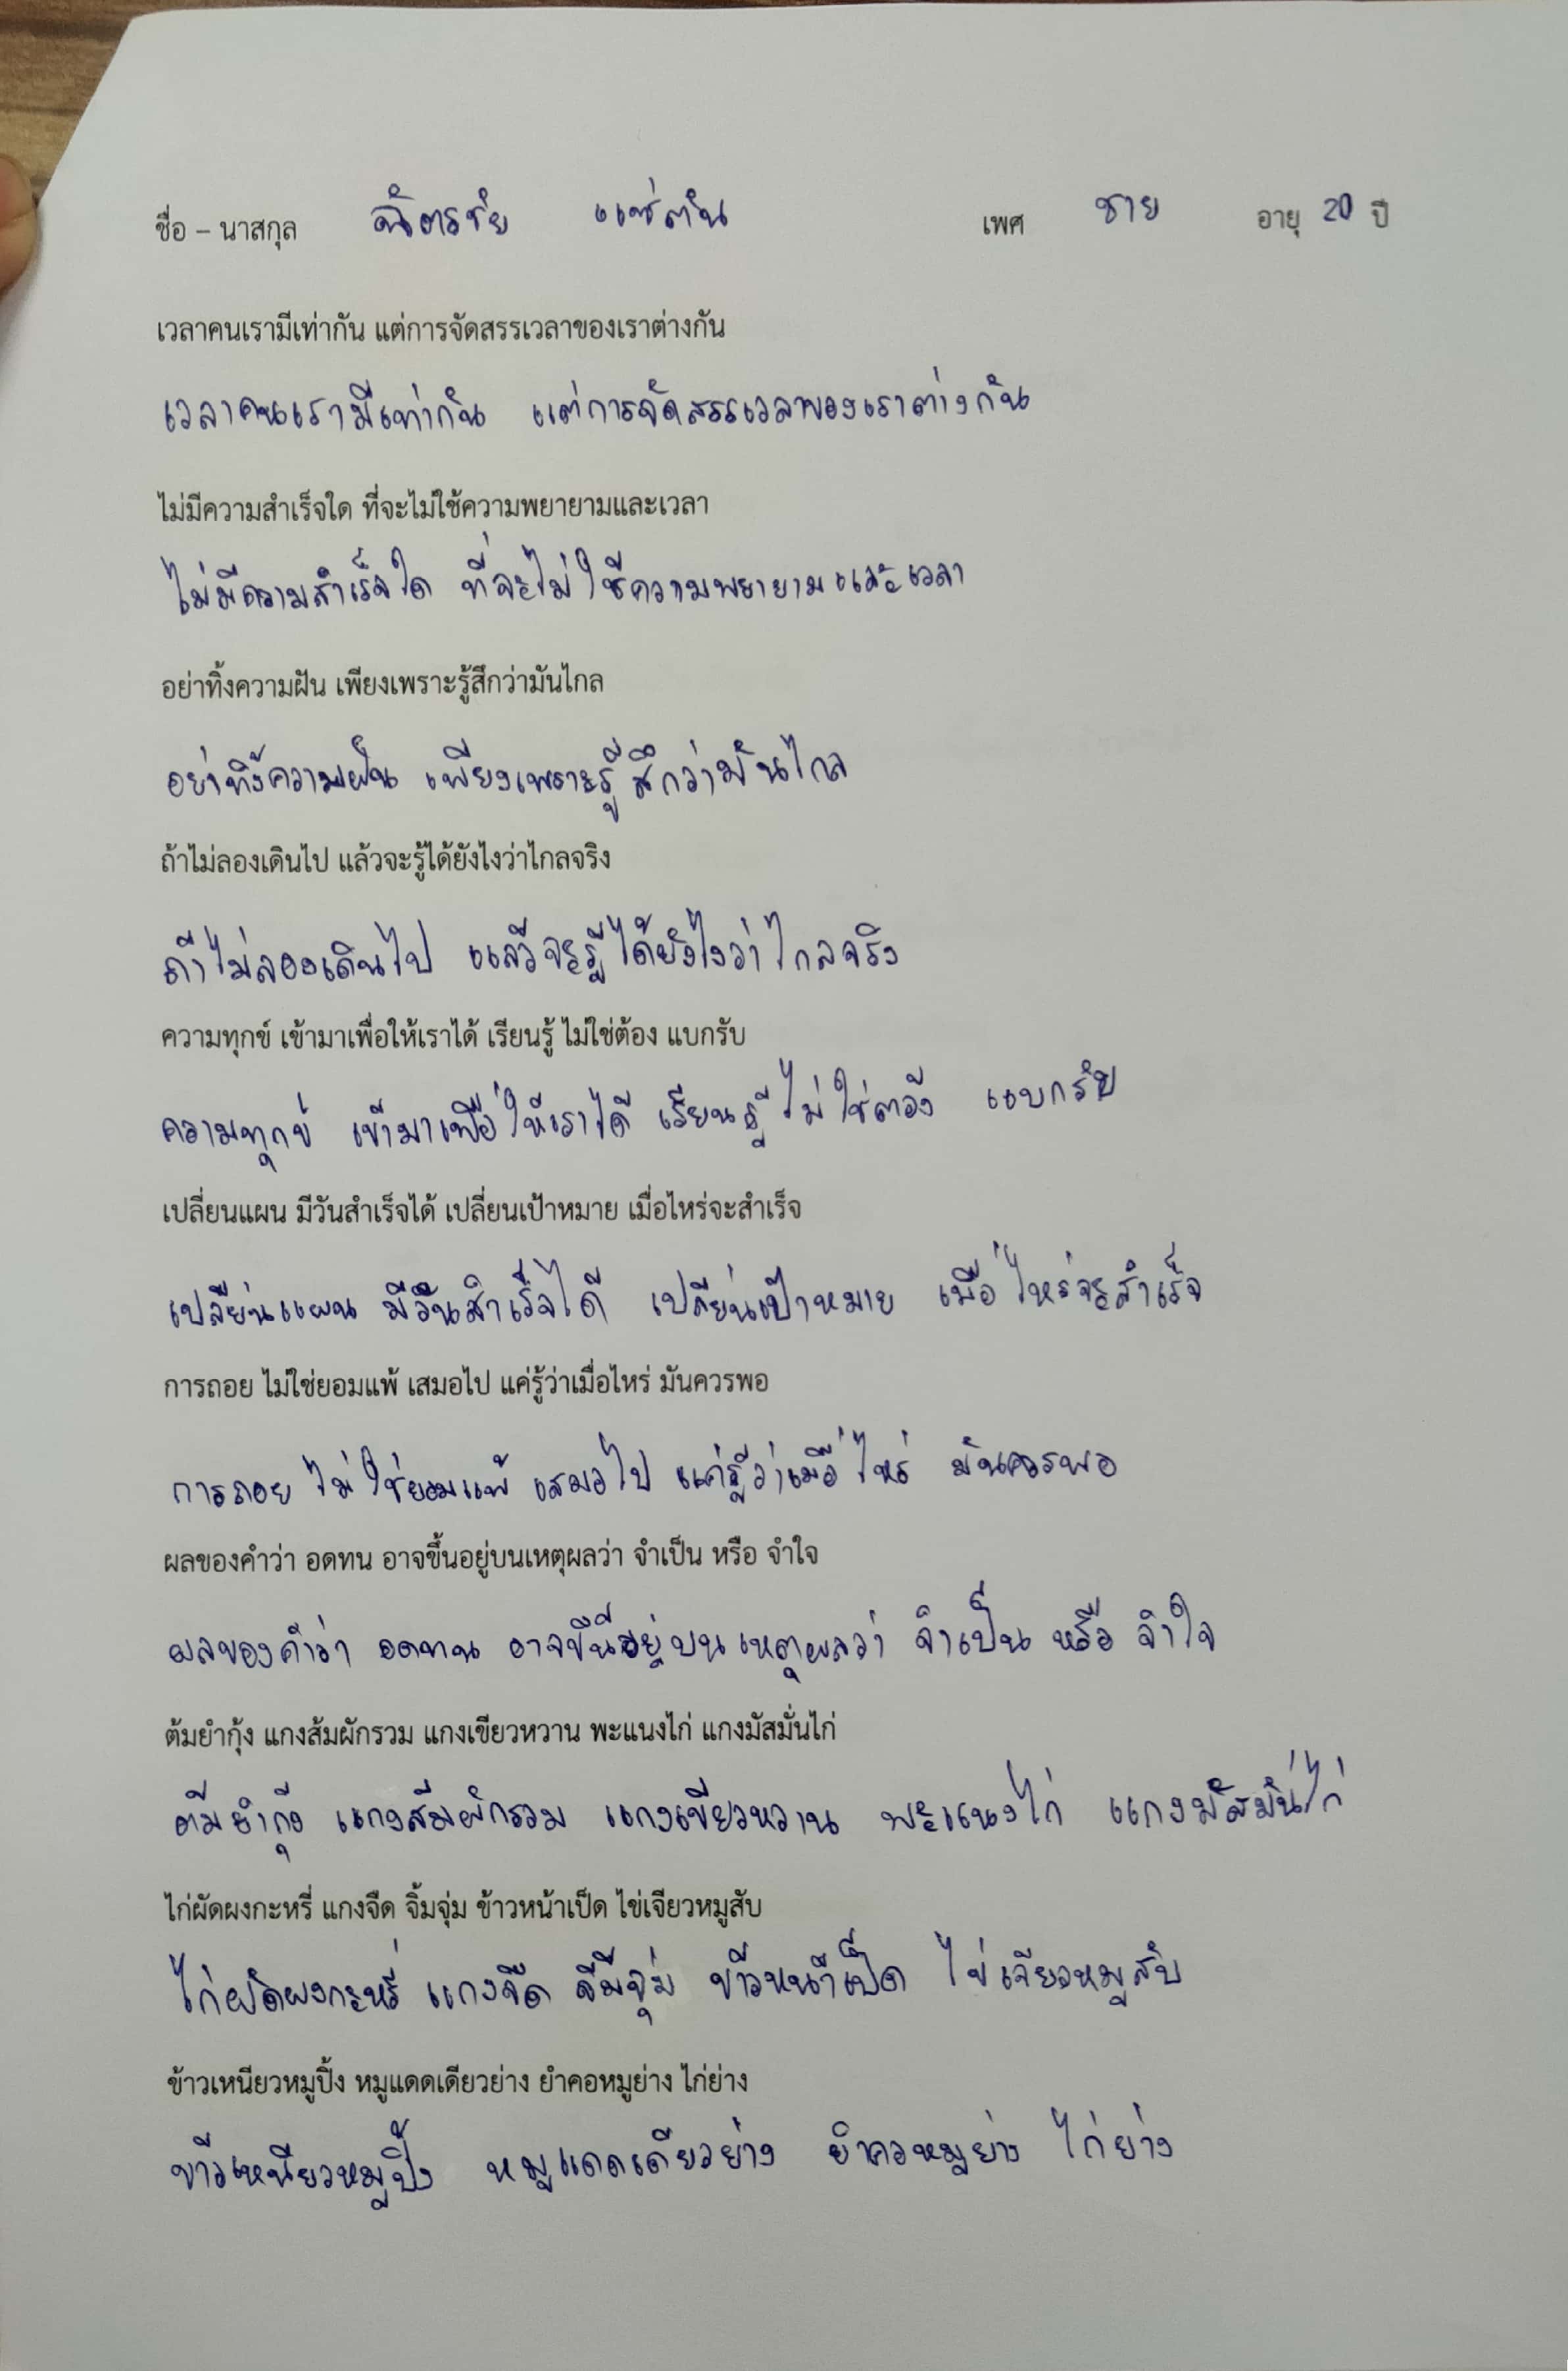 ชื่อ – นาสกุล ฉัตรชัย แซ่ตัน เพศ ชาย อายุ 20 ปี
เวลาคนเรามีเท่ากัน แต่การจัดสรรเวลาของเราต่างกัน
เวลาคนเรามีเท่ากัน แต่การจัดสรรเวลาของเราต่างกัน
ไม่มีความสำเร็จใด ที่จะไม่ใช้ความพยายามและเวลา
ไม่มีความสำเร็จใด ที่จะไม่ใช้ความพยายามและเวลา
อย่าทิ้งความฝัน เพียงเพราะรู้สึกว่ามันไกล
อย่าทิ้งความฝัน เพียงเพราะรู้สึกว่ามันไกล
ถ้าไม่ลองเดินไป แล้วจะรู้ได้ยังไงว่าไกลจริง
ถ้าไม่ลองเดินไป แล้วจะรู้ได้ยังไงว่าไกลจริง
ความทุกข์ เข้ามาเพื่อให้เราได้ เรียนรู้ ไม่ใช่ต้อง แบกรับ
ความทุกข์ เข้ามาเพื่อให้เราได้ เรียนรู้ ไม่ใช่ต้อง แบกรับ
เปลี่ยนแผน มีวันสำเร็จได้ เปลี่ยนเป้าหมาย เมื่อไหร่จะสำเร็จ
เปลี่ยนแผน มีวันสำเร็จได้ เปลี่ยนเป้าหมาย เมื่อไหร่จะสำเร็จ
การถอย ไม่ใช่ยอมแพ้ เสมอไป แค่รู้ว่าเมื่อไหร่ มันควรพอ
การถอย ไม่ใช่ยอมแพ้ เสมอไป แค่รู้ว่าเมื่อไหร่ มันควรพอ
ผลของคำว่า อดทน อาจขึ้นอยู่บนเหตุผลว่า จำเป็น หรือ จำใจ
ผลของคำว่า อดทน อาจขึ้นอยู่บนเหตุผลว่า จำเป็น หรือ จำใจ
ต้มยำกุ้ง แกงส้มผักรวม แกงเขียวหวาน พะแนงไก่ แกงมัสมั่นไก่
ต้มยำกุ้ง แกงส้มผักรวม แกงเขียวหวาน พะแนงไก่ แกงมัสมั่นไก่
ไก่ผัดผงกะหรี่ แกงจืด จิ้มจุ่ม ข้าวหน้าเป็ด ไข่เจียวหมูสับ
ไก่ผัดผงกะหรี่ แกงจืด จิ้มจุ่ม ข้าวหน้าเป็ด ไข่เจียวหมูสับ
ข้าวเหนียวหมูปิ้ง หมูแดดเดียวย่าง ยำคอหมูย่าง ไก่ย่าง
ข้าวเหนียวหมูปิ้ง หมูแดดเดียวย่าง ยำคอหมูย่าง ไก่ย่าง